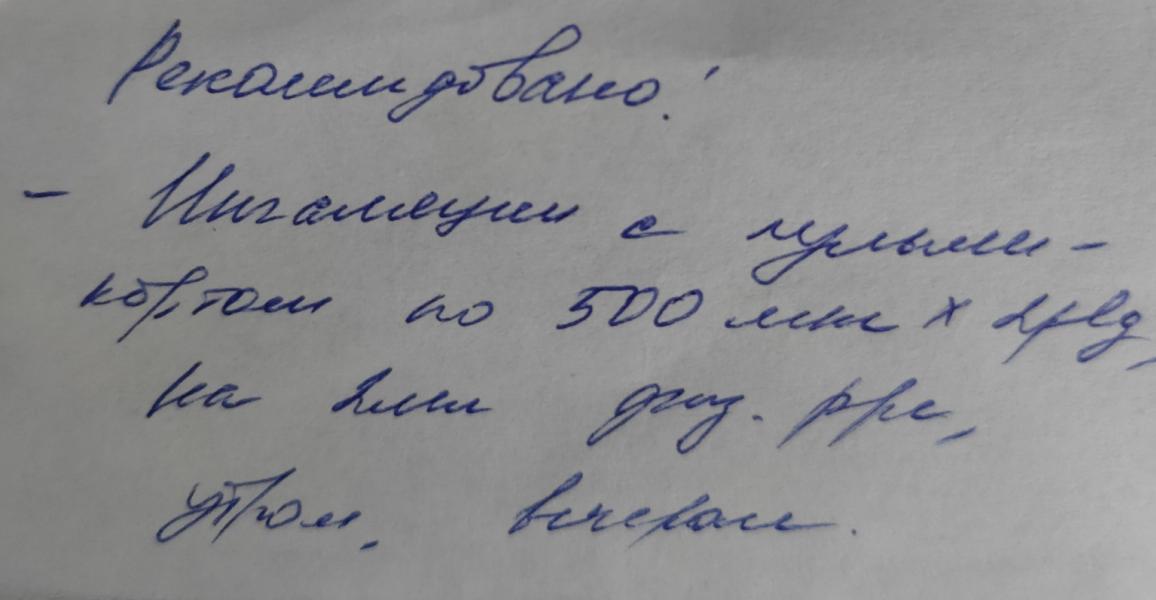 Рекомендовано:
- Ингаляции с пульми-
кортом по 500 мкг х 2р/д,
на 2мл физ. р-ра,
утром, вечером.